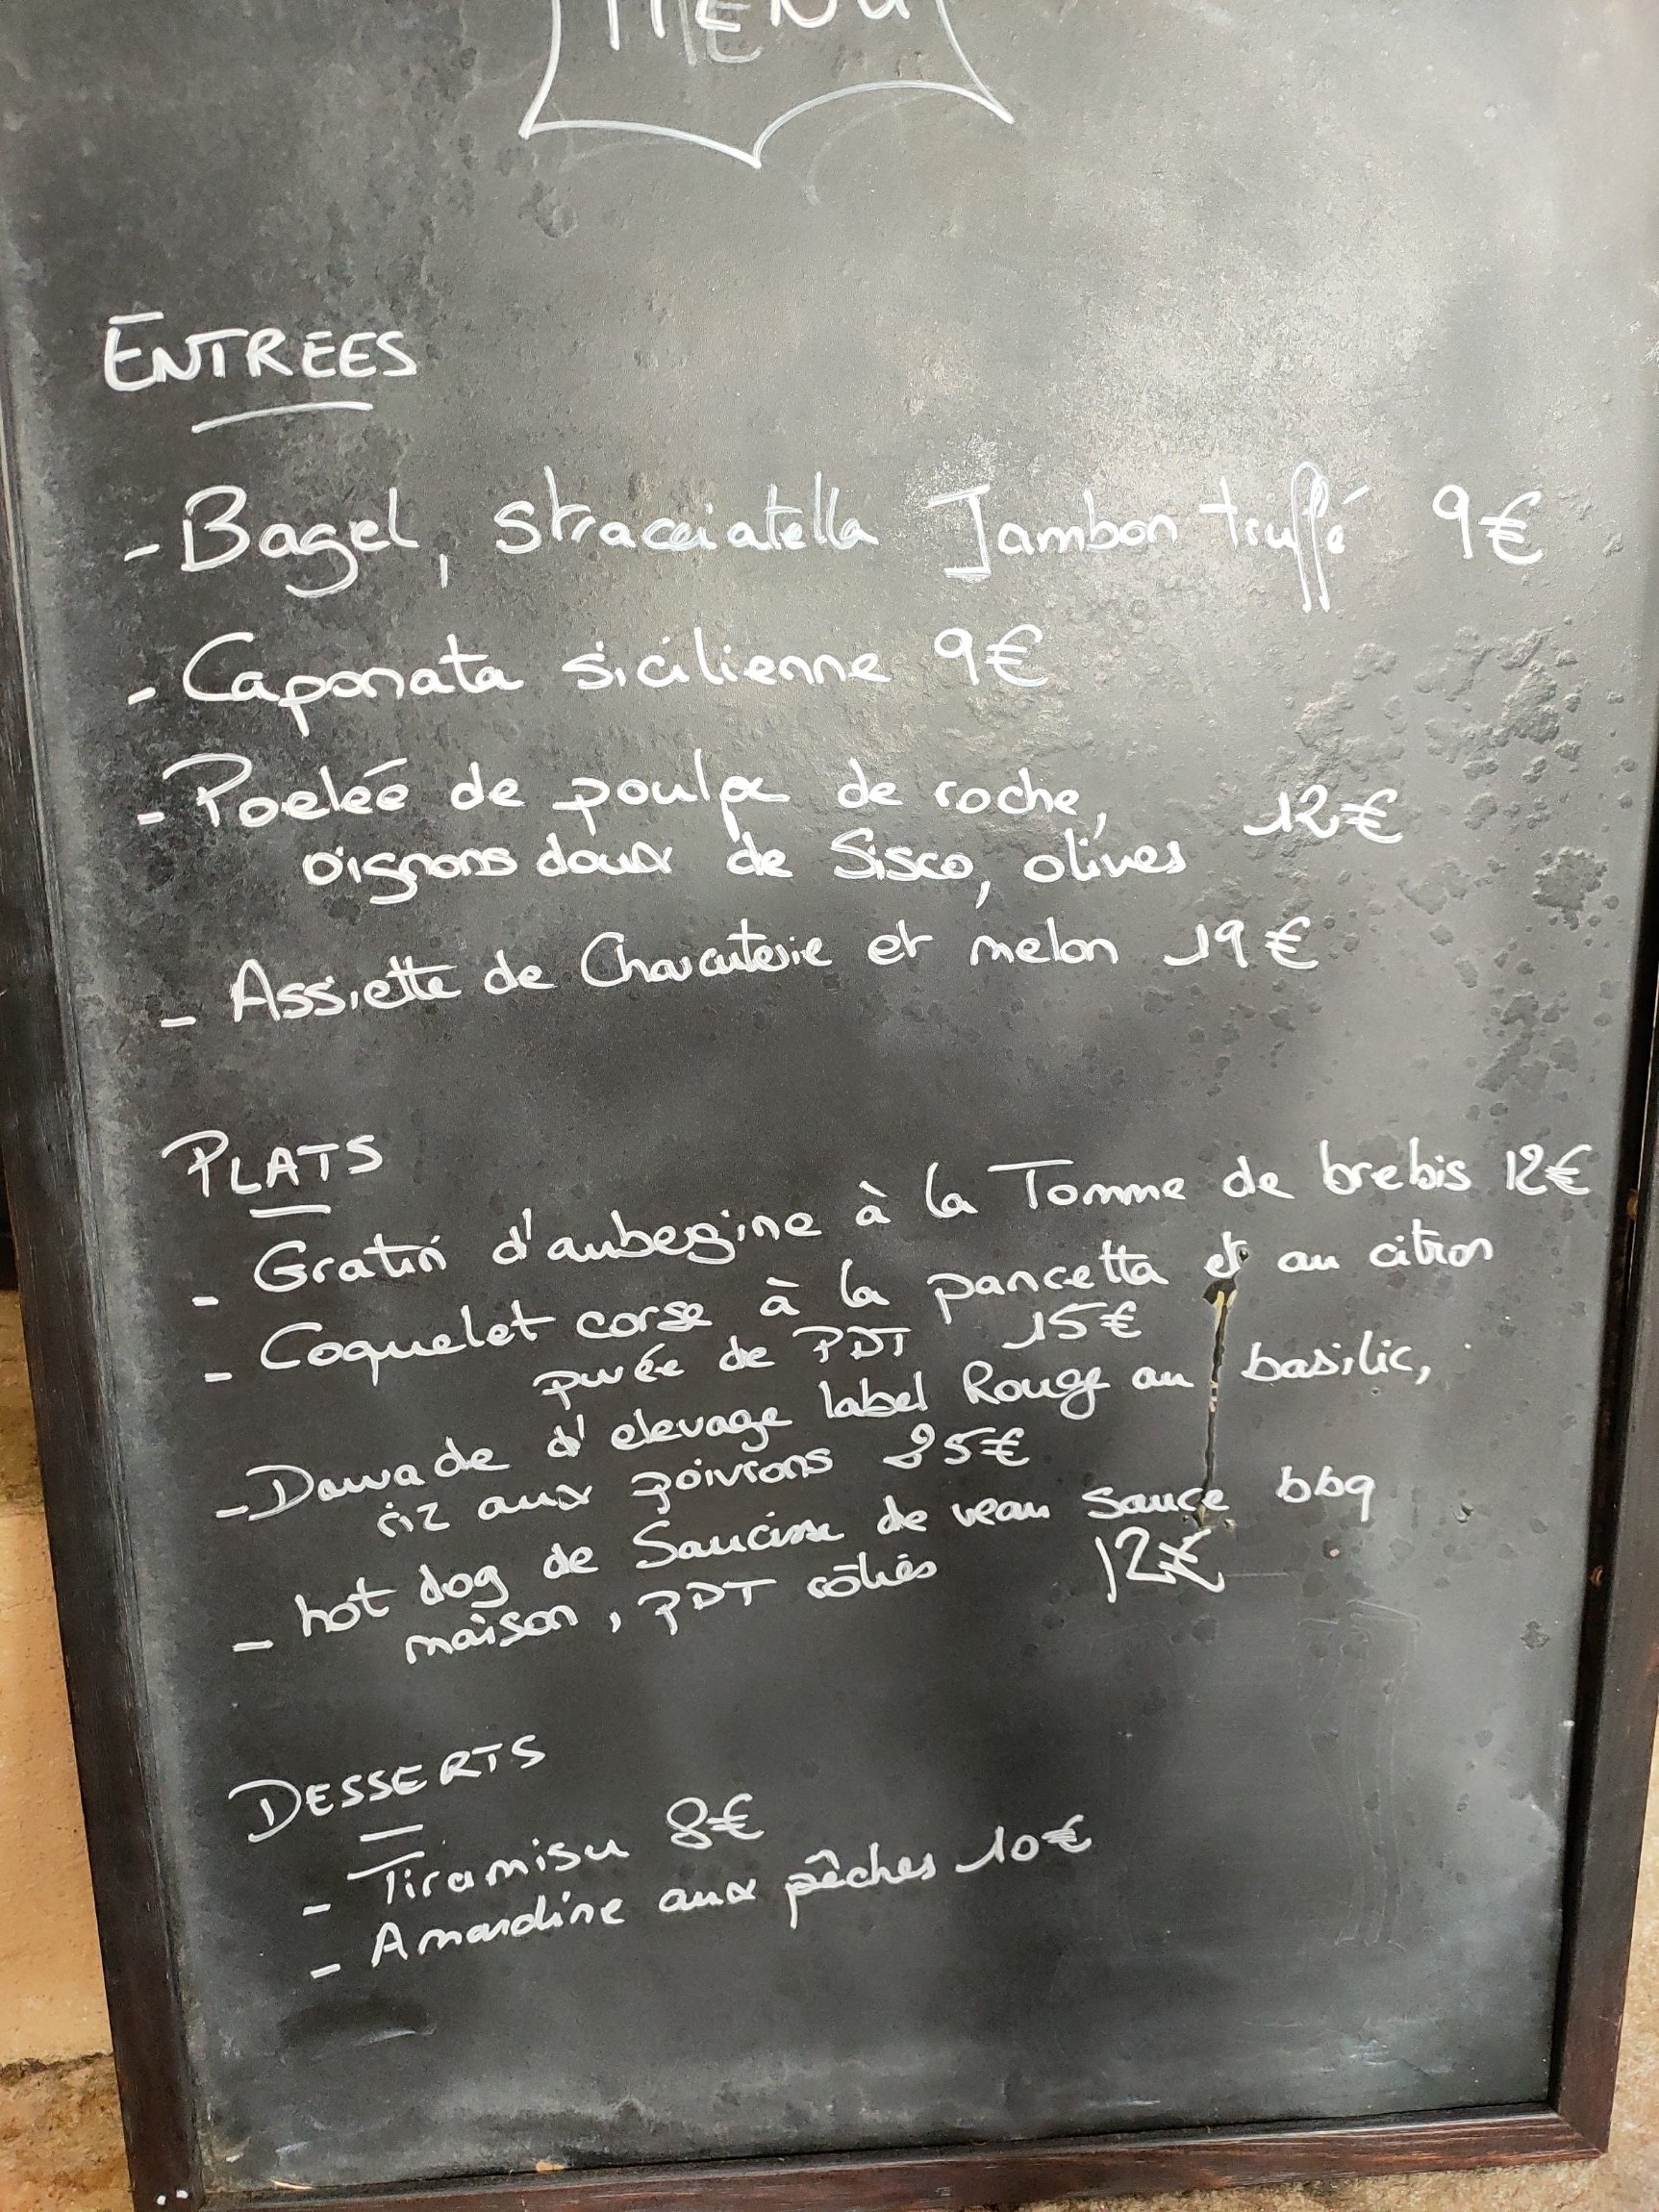 MENU
ENTREES
- Bagel, stracciatella Jambon truffé 9€
- Caponata sicilienne 9€
- Poeleé de poulpe de roche,
oignons doux de Sisco, olives 12€
- Assiette de Charcuterie et melon 19€
PLATS
- Gratin d'aubergine à la Tomme de brebis 12€
- Coquelet corse à la pancetta et au citron
purée de PDT 15€
- Dawade d'elevage label Rouge au basilic,
riz aux poivrons 25€
- hot dog de Saucisse de veau sauce bbq
maison, PDT rôties 12€
DESSERTS
- Tiramisu 8€
- Amandine aux pêches 10€